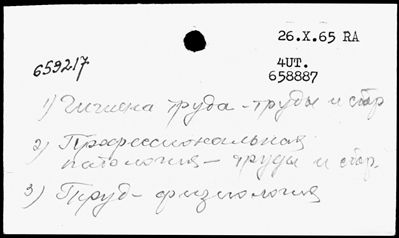 26.X.65 RA
659217
4UT.
658887
1) Гигиена труда - труды и сбор
2) Профессиональная
патология - труды и сбор.
3) Труд - физиология